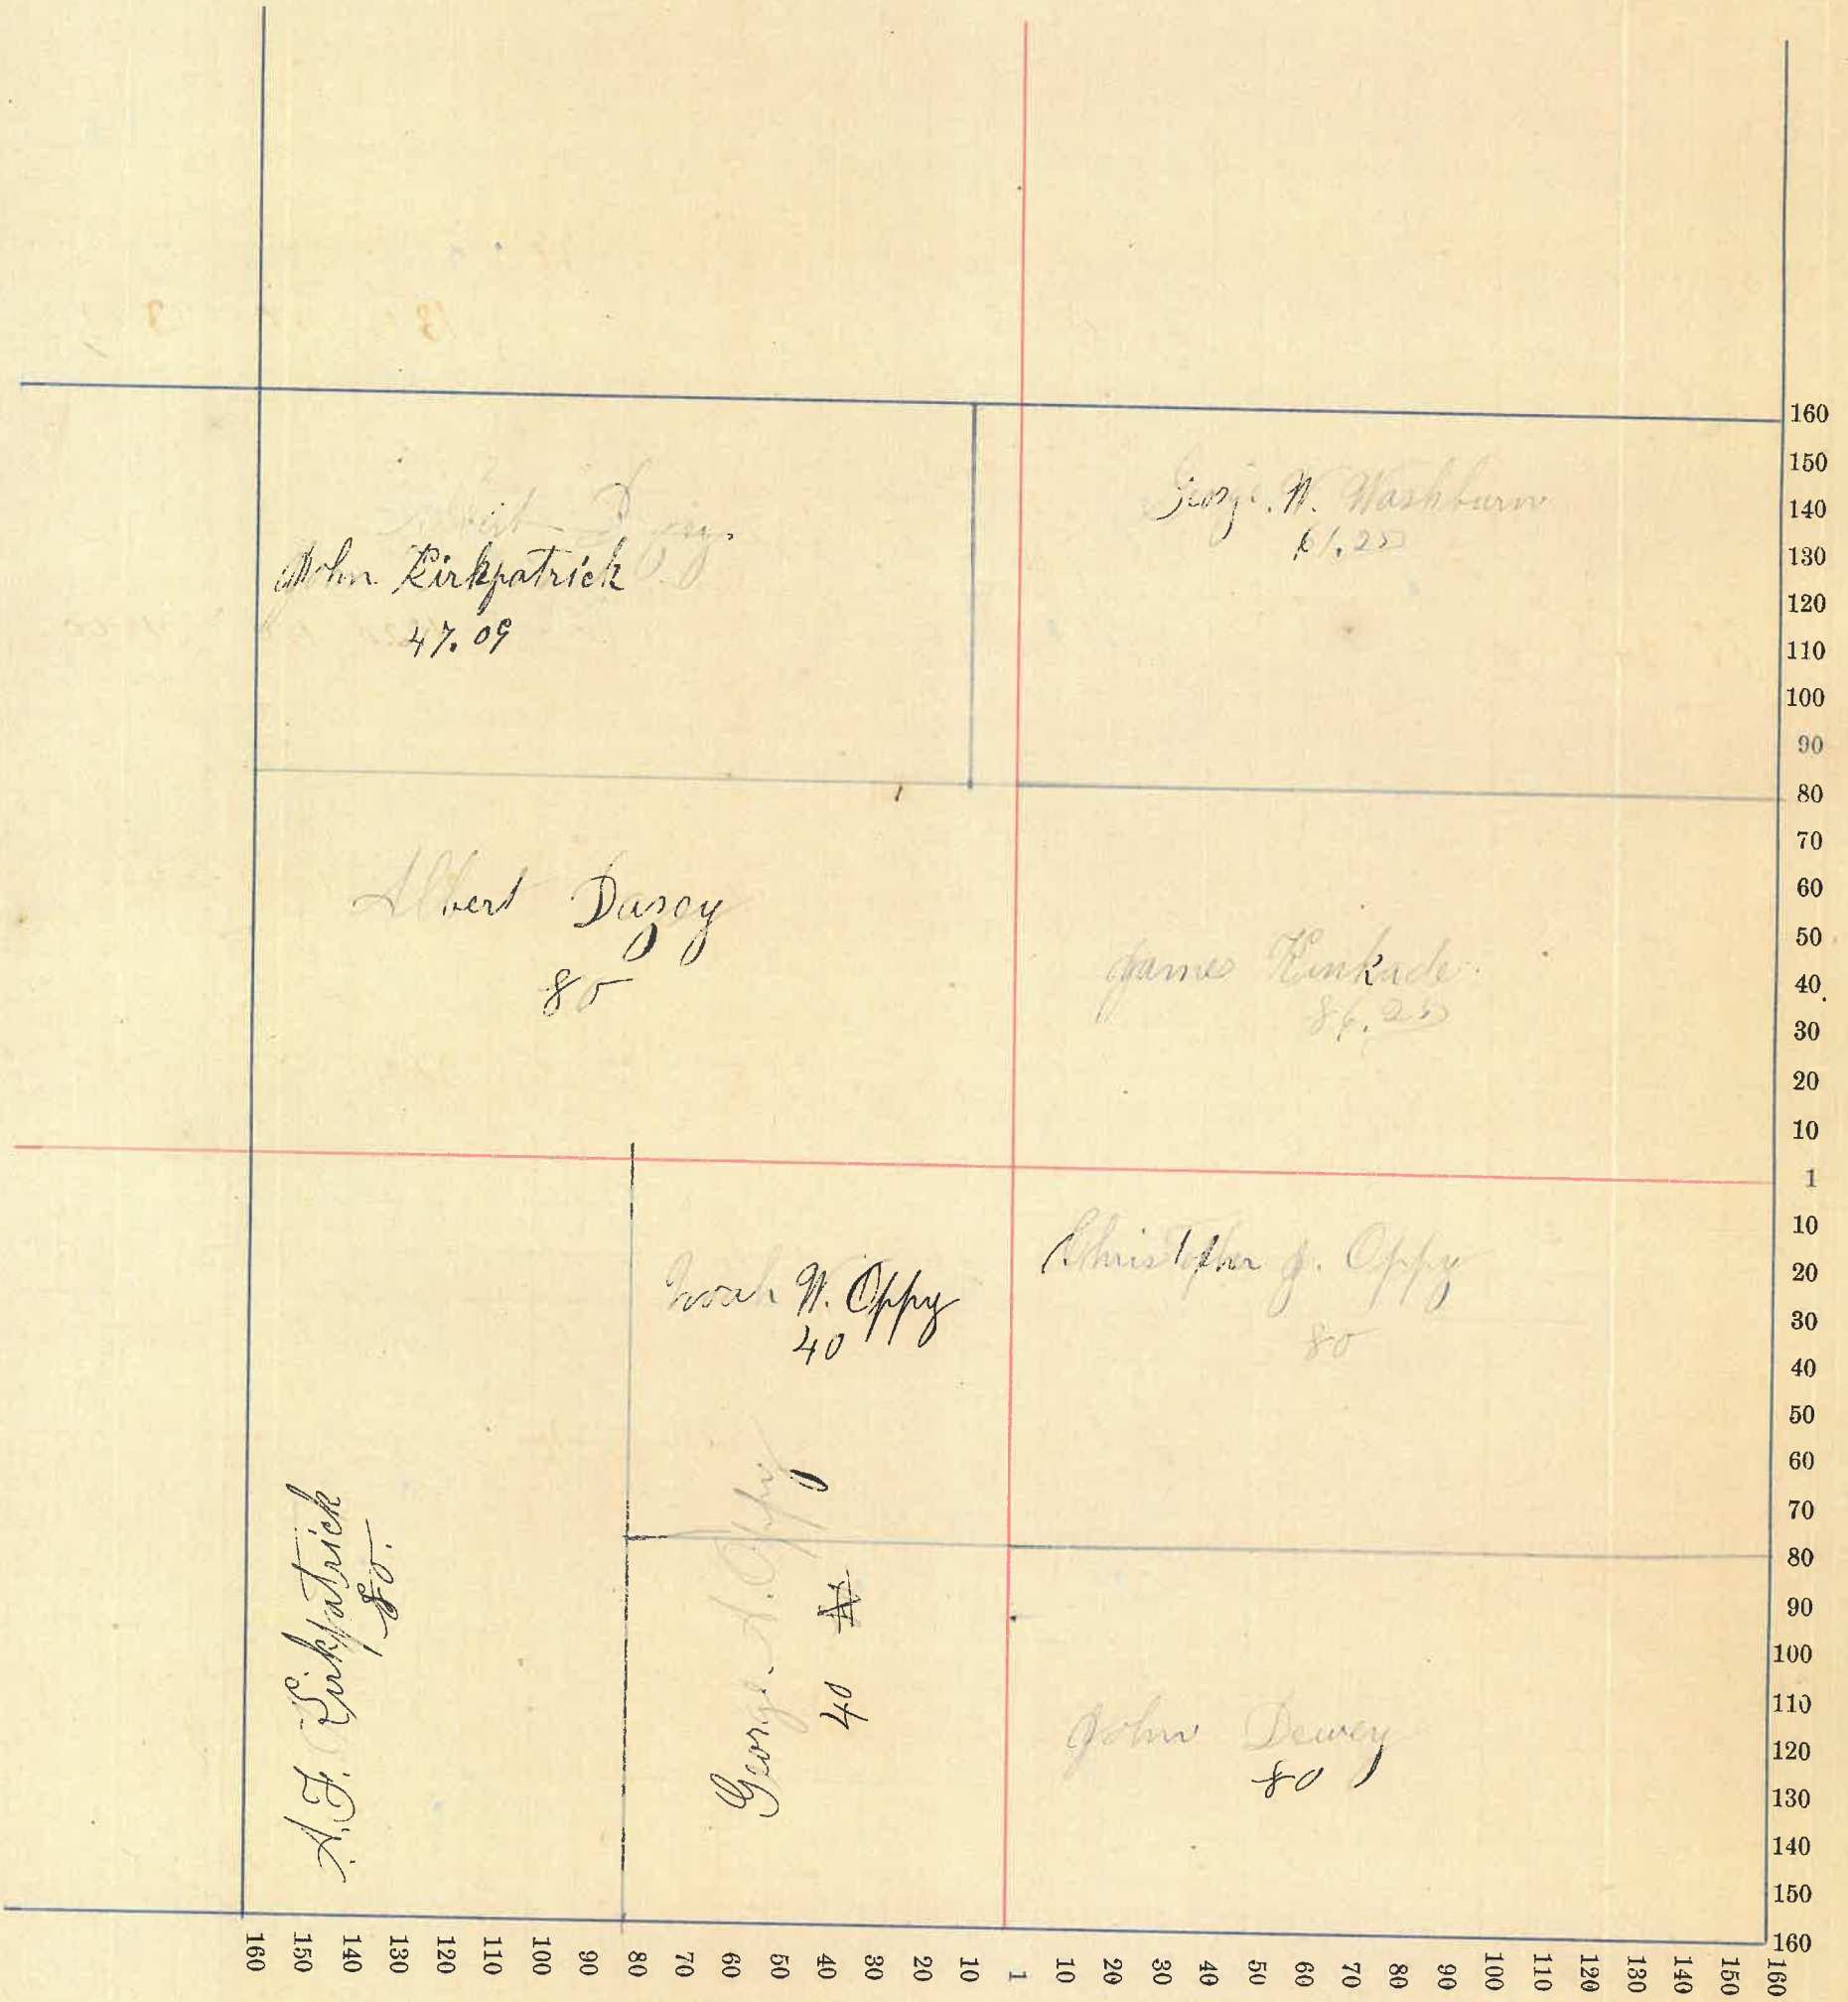 George W. Washburn
61.25
John Kirkpatrick
47.09
Albert Dazey
80
James Kinkade
86.25
Noah W. Oppy
40
Christopher J. Oppy
80
A. F. Kirkpatrick
80.
George A. Oppy
40
John Dewey
80
160
150
140
130
120
110
100
90
80
70
60
50
40
30
20
10
1
10
20
30
40
50
60
70
80
90
100
110
120
130
140
150
160
160 150 140 130 120 110 100 90 80 70 60 50 40 30 20 10 1 10 20 30 40 50 60 70 80 90 100 110 120 130 140 150 160